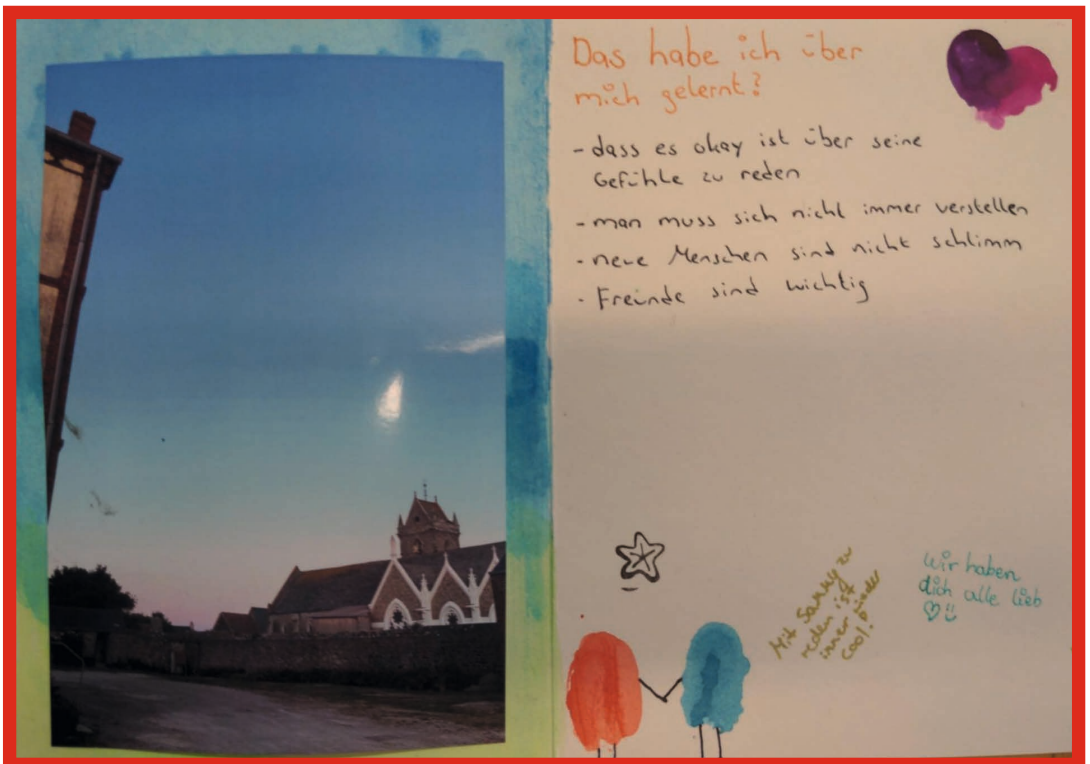 Das habe ich über
mich gelernt?
- dass es okay ist über seine
Gefühle zu reden
- man muss sich nicht immer verstellen
- neue Menschen sind nicht schlimm
- Freunde sind wichtig
Mit Sammy zu
reden ist
immer
cool!
wir haben
dich alle lieb